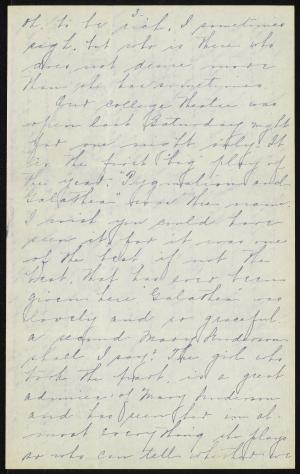 3.
oh, to be rich. I sometimes
sigh, but who is there who
does not desire more
than she has sometimes
Our college theatre was
open last Saturday night
for one night only. It
is the first "big" play of
the year. "Pygmalion and
Galathea" was the name.
I wish you could have
seen it for it was one
of the best if not the
best, that has ever been
given here. Galathea was
lovely and so graceful
a second Mary Anderson
shall I say? The girl who
took the part, is a great
admirer of Mary Anderson
and has seen her in al-
most everything she plays
so who can tell whether we